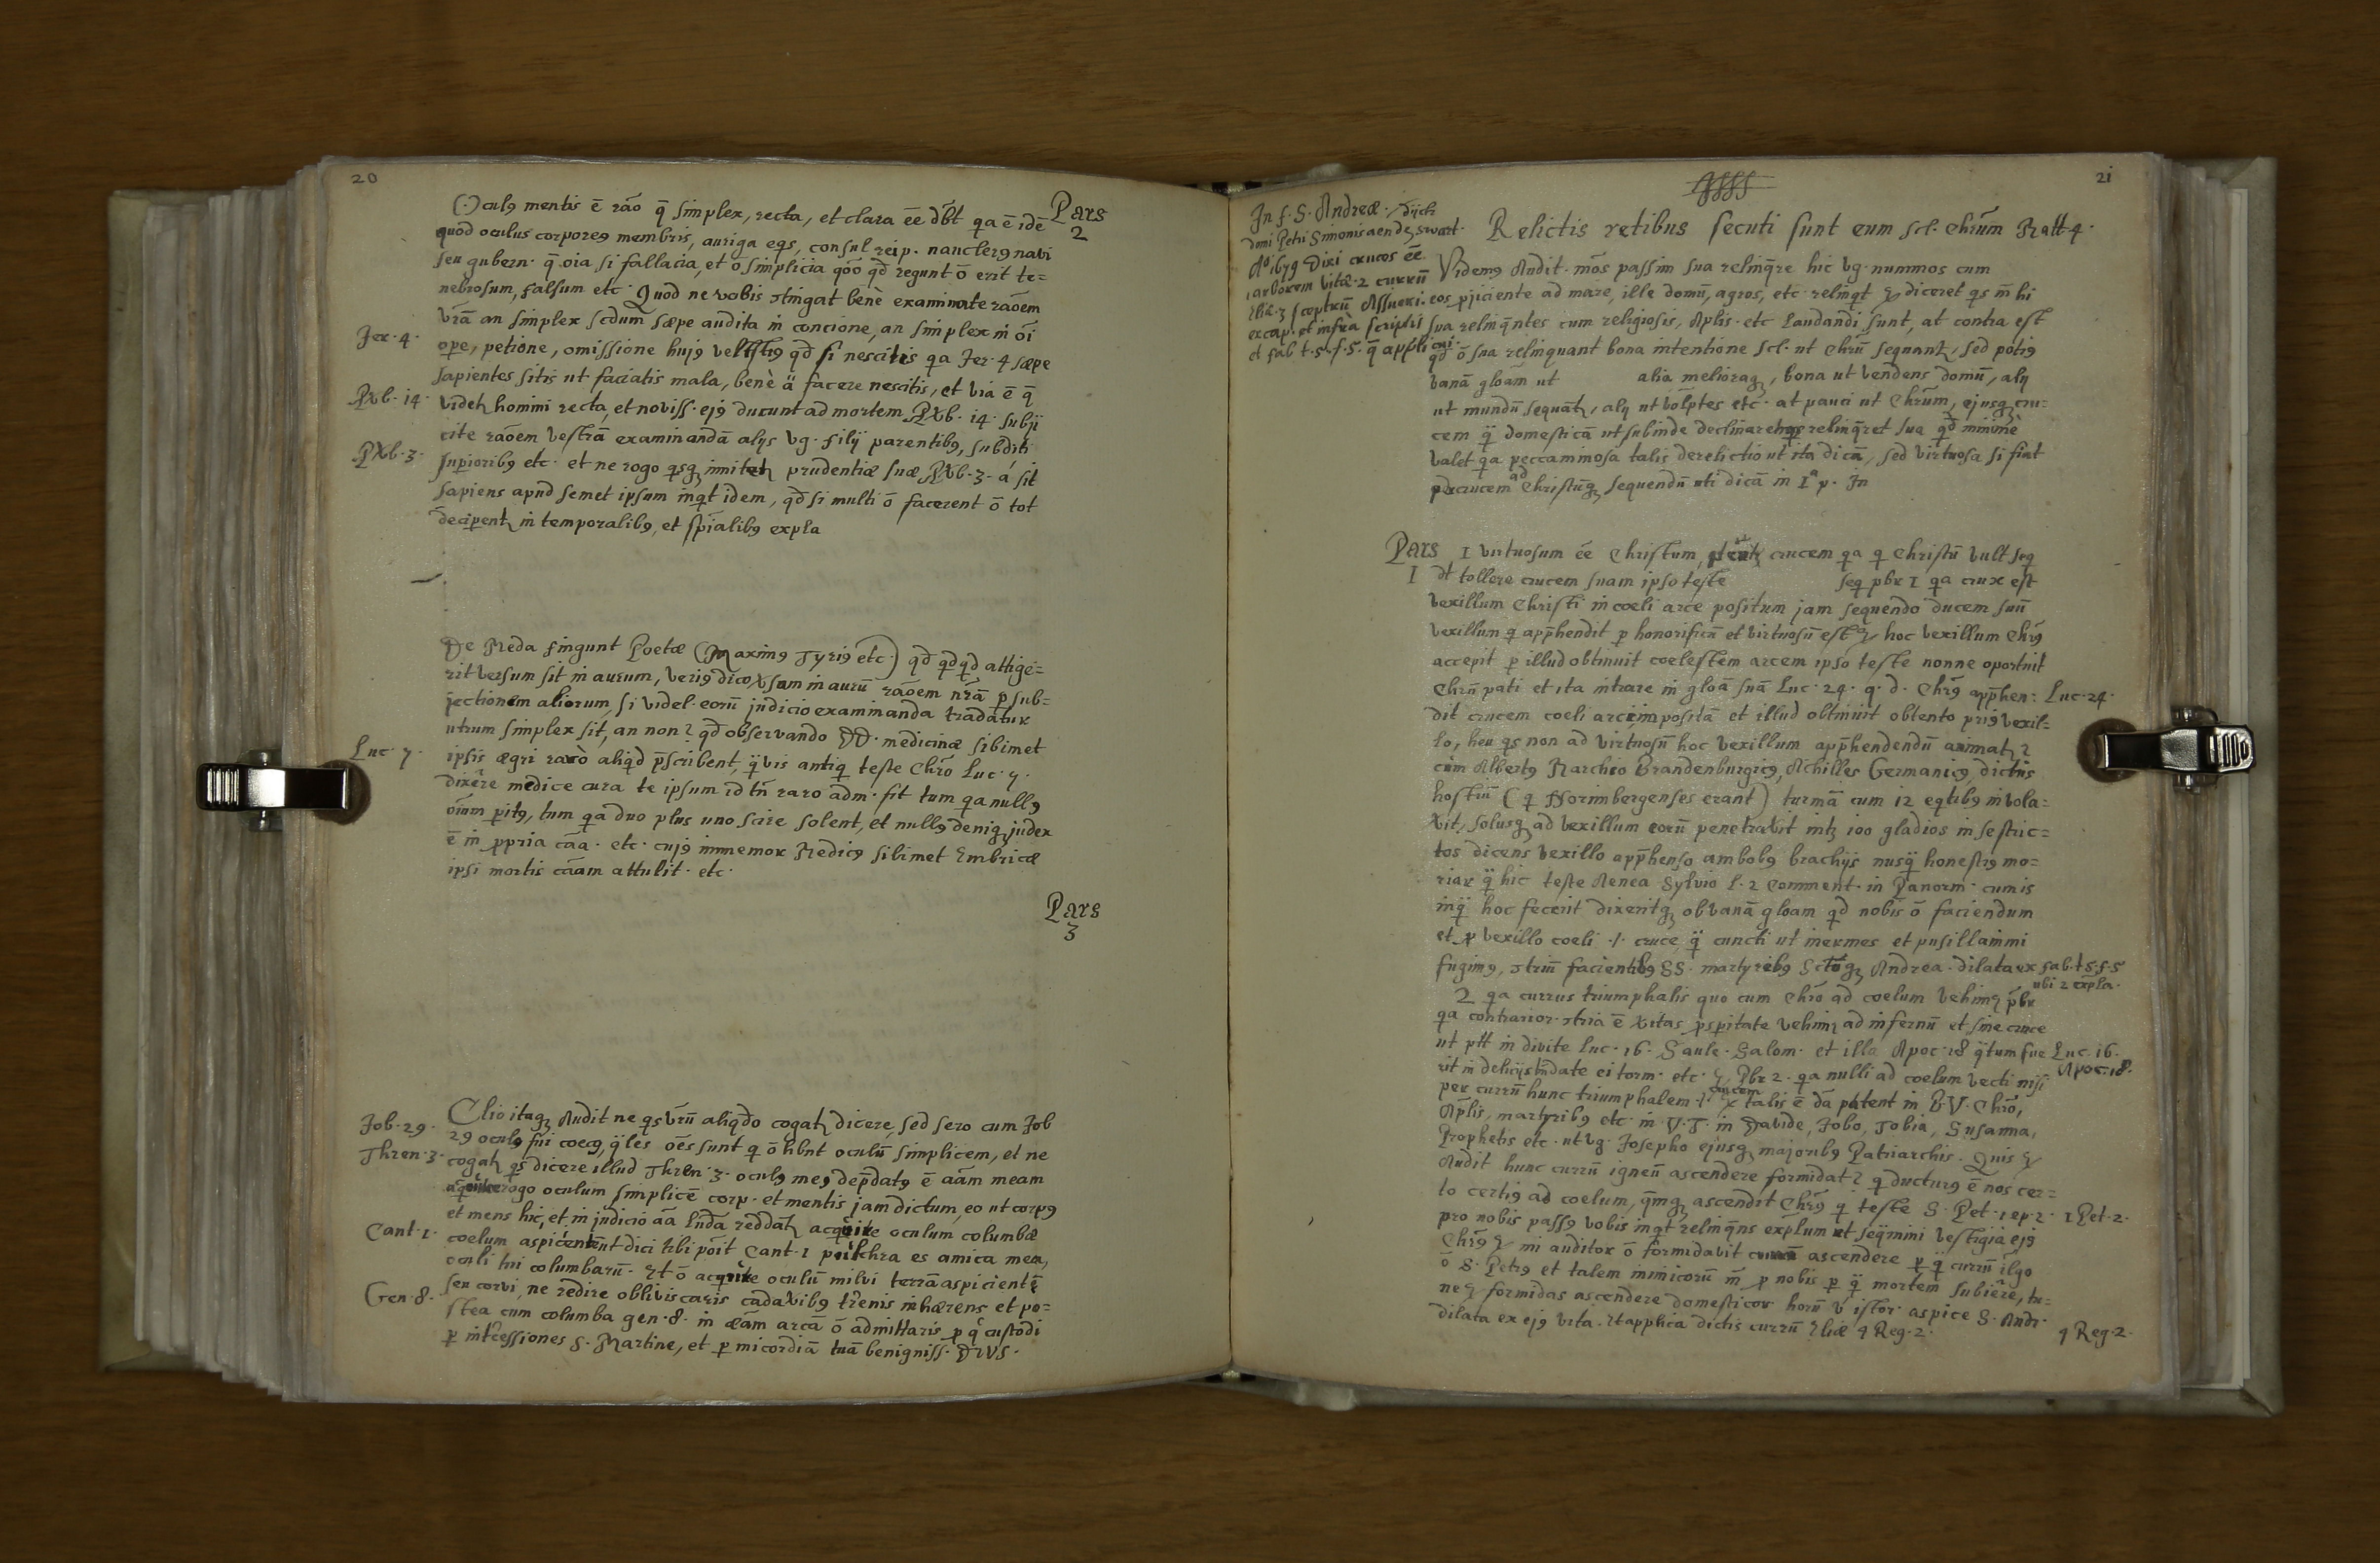 20
Pars
2
(.) culꝯ mentis ē rāo q̄ simplex, recta, et clara ēe db̄t qa ē idē
quod oculus corporeꝯ membris, auriga eqs, consul reip. nauclerꝯ navi
seu gubern. q̄ oīa si fallacia, et ō simplicia qōo qd̄ regunt ō erit te=
nebrosum, falsum etc. Quod ne vobis ɔtingat benè examinate rāoem
vr̄ā an simplex scdum sæpe audita in concione, an simplex in ōi
ope, petione, omissione hujꝯ qd̄ si nescitis qa Jer. 4 sæpe
Jer. 4.
sapientes sitis ut faciatis mala, benè ā facere nescitis, et via ē q̄
Pꝟb. 14.
videtꝫ homini recta, et noviss. ejꝯ ducunt ad mortem Pꝟb. 14. subji
cite rāoem vestrā examinandā alijs vg. filij parentibꝯ, subditi
Pꝟb. 3.
supioribꝯ etc. et ne rogo qsqꝫ prudentiæ suæ, Pꝟb. 3. á sit
sapiens apud semet ipsum inqt idem, qd̄ si multi ō facerent ō tot
decipentꝫ in temporalibꝯ, et sp̄ialibꝯ expla
De Meda fingunt Poetæ (Maximꝯ Tyriꝯ etc.) qd̄ qdqd attige=
rit versum sit in aurum, veriꝯ dico ꝟsam in aurū rāoem nr̄ā p sub=
jectionem aliorum, si videl. eorū judicio examinanda tradatur
utrum simplex sit, an non? qd̄ observando DD. medicinæ sibimet
Luc. 7.
ipsis ægri rarò aliqd p̄scribent, q̄vis antiq teste Chrō Luc. 7.
dixēre medice cura te ipsum id tn̄ raro adm. fit tum qa nullꝯ
oīum pitꝯ, tum qa duo plus uno scire solent, et nullꝯ deniqꝫ judex
ē in ppria cāa. etc. cujꝯ immemor Medicꝯ sibimet Embricæ
ipsi mortis cāam attulit. etc.
Pars
3
Job. 29.
Clio itaqꝫ Audit ne qs vrū aliqdo cogatꝫ dicere, sed sero cum Job
29 oculꝯ fui coecꝯ, q̄les oēs sunt q ō hb̄nt oculū simplicem, et ne
Thren. 3.
cogatꝫ qs dicere illud Thren. 3. oculꝯ meꝯ dep̄datꝯ ē aām meam
rogo oculum simplicē corp. et mentis jam dictum, eo ut corpꝯ
et mens hic, et in judicio aā lūda reddatꝫ acqūite oculum columbæ
Cant. 1.
coelum aspicentē ut dici tibi pōit Cant. 1 pulchra es amica mea,
oculi tui columbarū. Et ō acqūire oculū milvi terrā aspicientē
Gen. 8.
seu corvi, ne redire obliviscaris cadaꝟibꝯ trēnis inhærens et po=
stea cum columba gen. 8. in eām arcā ō admittaris p q custodi
p intcessiones S. Martine, et p micordiā tuā benigniss. DIVS.
21
In f. S. Andreæ. dijck
domi Petri Simonis aen de swart.
Aō 1679 Dixi cruces ēe
1 arborem vitæ. 2 currū
Eliæ. 3 sceptrū Assueri.
excap. et infrà scriptis
et sab t. 5. f. 5. q̄ applicui.
Relictis retibus secuti sunt eum scl. Chrūm Matt 4.
Videmꝯ Audit. mōs passim sua relinq̄re hic vg. nummos cum
eos pjiciente ad mare, ille domū, agros, etc. relinqt diceret qs m̄ hi
sua relinq̄ntes cum religiosis, Aplis. etc laudandi sunt, at contra est
qd̄ ō sua relinquant bona intentione scl. ut Chrū sequantꝫ, sed potiꝯ
vanā gloām ut alia meliora, bona ut vendens domū, alij
ut mundū sequātꝫ, alij ut volptes etc. at pauci ut Chrūm, ejusqꝫ cru=
cem q̄ domesticā ut subinde declinaret relinq̄ret sua qd̄ minimè
valet qa peccaminosa talis derelictio ut ita dicā, sed virtuosa si fiat
crucem ad Christūqꝫ sequendū uti dicā in I a p. In
Pars
I
I virtuosum ēe Christum, crucem qa q Christū vult seq
dt tollere crucem suam ipso teste seq pbr I qa crux est
vexillum Christi in coeli arce positum jam sequendo ducem suū
vexillum q app̄hendit p honorificū et virtuosū est hoc vexillum Chrꝯ
accepit p illud obtinuit coelestem arcem ipso teste nonne oportuit
Chrū pati et ita intrare in gloā suā Luc. 24. q. d. Chrꝯ app̄hen:
Luc. 24.
dit crucem coeli arci impositā et illud obtinuit obtento priꝯ vexil=
lo, heu qs non ad virtuosū hoc vexillum app̄hendendū animatꝫ?
cùm Albertꝯ Marchio Brandenburgicꝯ, Achilles Germanicꝯ, dictus
hostiū (q Norimbergenses erant) turmā cum 12 eqtibꝯ invola=
ꝟit, solusqꝫ ad vexillum eorū penetravit intꝫ 100 gladios in se stric=
tos dicens vexillo app̄henso ambobꝯ brachijs nusq̄ honestiꝯ mo=
riar q̄ hic teste Aenea Sylvio l. 2 Comment. in Panorm. cum is
inq̄ hoc fecerit dixeritqꝫ ob vanā gloam qd nobis ō faciendum
et p vexillo coeli ./. cruce q̄ cuncti ut inermes et pusillanimi
fugimꝯ, ɔtriū facientibꝯ SS. martyribꝯ Sctoqꝫ Andrea. dilata ex sab. t. 5. f. 5
ubi 2 expla.
2 qa currus triumphalis quo cum Chrō ad coelum vehimꝫ p̄br
qa contrarior. ɔtria ē ꝟitas pspitate vehimꝫ ad infernū et sine cruce
ut ptt in divite Luc. 16. Saule. Salom. et illo Apoc. 18 q̄tum fue
Luc. 16.
Apoc. 18.
rit in delicijs tn̄ date ei torm. etc. Pbr 2. qa nulli ad coelum vecti nisi
per currū hunc triumphalem ./. crucem talis ē dā patent in B. V. Chrō,
Aplis, martyribꝯ etc. in V. T. in Davide, Jobo, Tobia, Susanna,
Prophetis etc. ut vg. Josepho ejusqꝫ majoribꝯ Patriarchis. Quis
Audit hunc currū igneū ascendere formidat? q ducturꝯ ē nos cer=
to certiꝯ ad coelum, q̄mqꝫ ascendit Chrꝯ q teste S. Pet. 1 ep. 2.
1 Pet. 2.
pro nobis passꝯ vobis inqt relinq̄ns explum ut seq̄mini vestigia ejꝯ
Chrꝯ mi auditor ō formidavit ascendere p q̄ currū ilgo
ō S. Petrꝯ et talem inimicorū m̄ p nobis p q̄ mortem subiēre, tu=
ne formidas ascendere domesticor horū v istor. aspice S. Andr.
dilata ex ejꝯ vita. Et applica dictis currū Eliæ 4 Reg. 2.
4 Reg. 2.